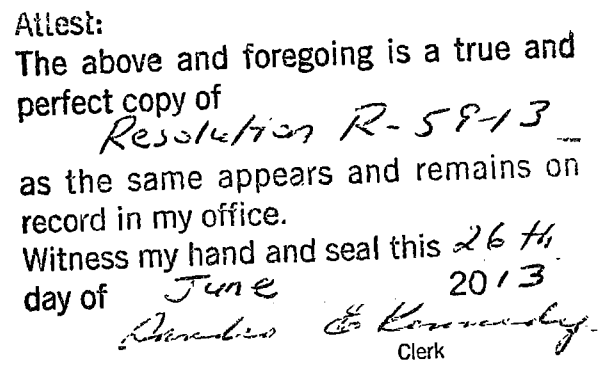 Attest:
The above and foregoing is a true and
perfect copy of
Resolution R-59-13
as the same appears and remains on
record in my office.
Witness my hand and seal this 26 th
day of June 2013
E Kennedy
Clerk